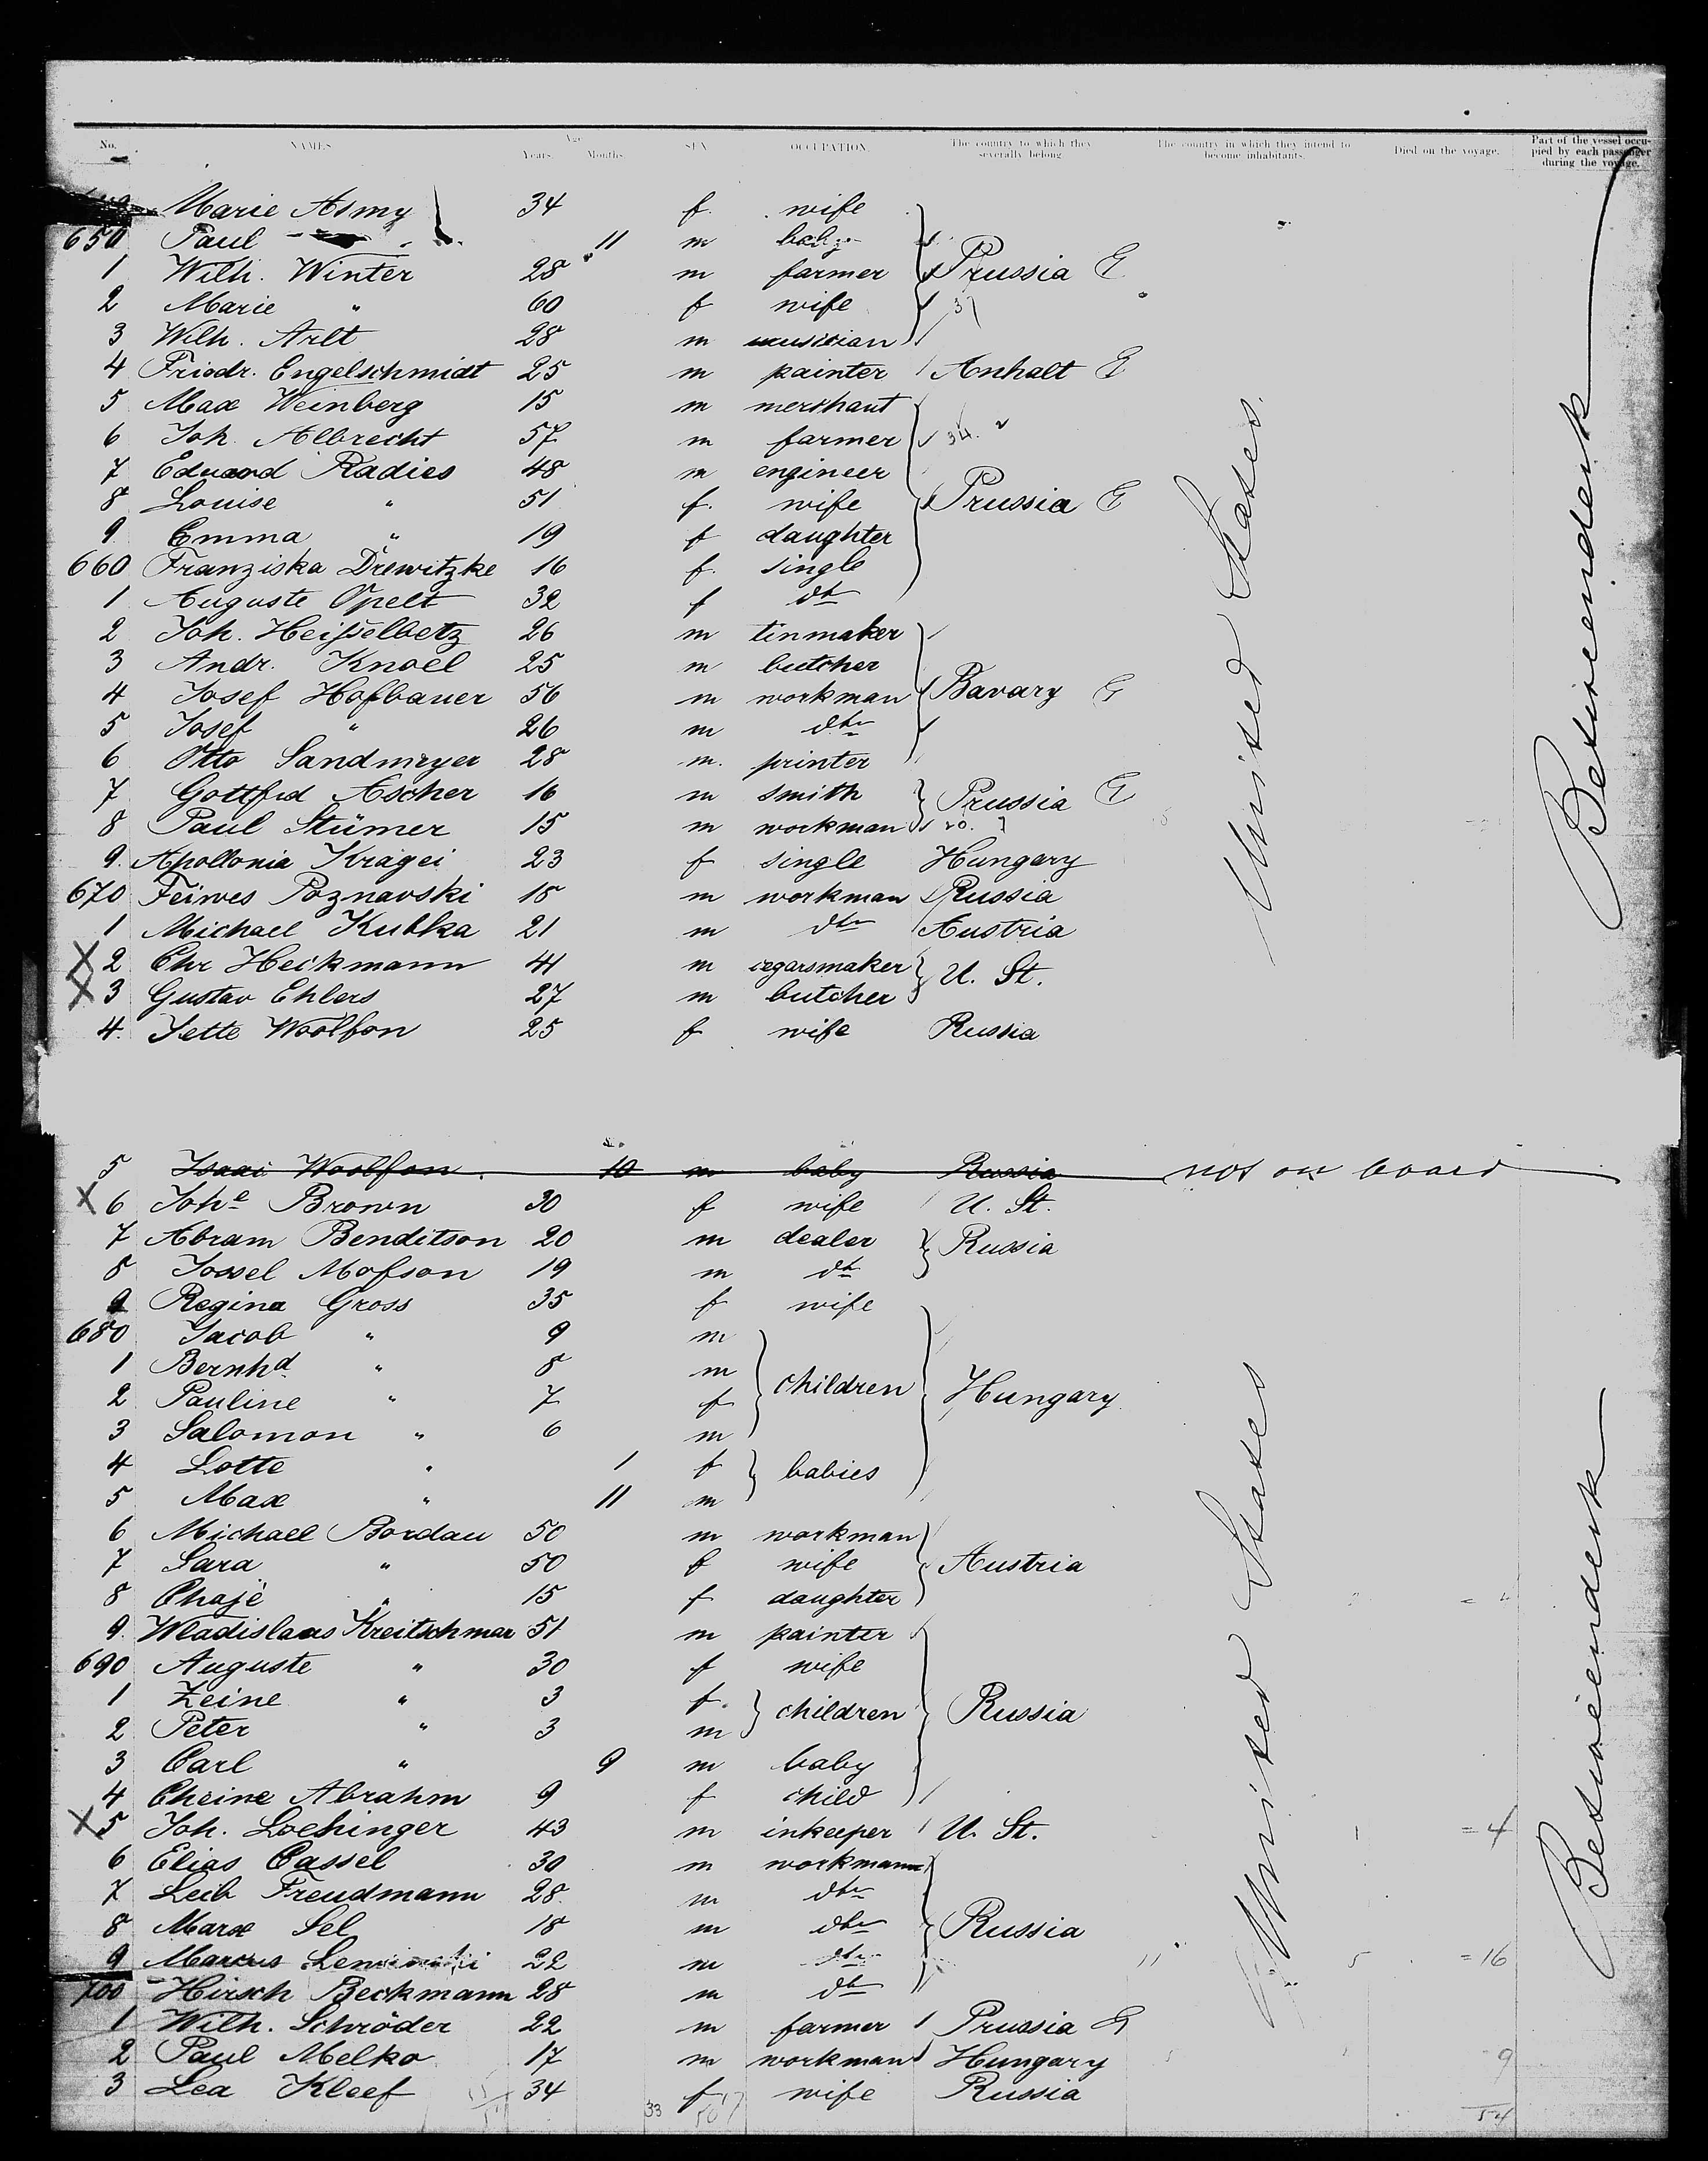 No. NAMES Age Years. Months. SEX OCCUPATION. The country to which they severally belong. The country in which they intend to become inhabitants. Died on the voyage. Part of the vessel occupied by each passenger during the voyage.
Marie Asmy 34 f. wife
650 Paul 11 m baby
1 Wilh. Winter 28 m farmer Prussia G
2 Marie " 60 f wife 37
3 Wilh. Arlt 28 m musician
4 Friedr. Engelschmidt 25 m painter Anhalt G
5 Max Weinberg 15 m merchant
6 Joh. Albrecht 57 m farmer 34.
7 Eduard Radies 48 m engineer
8 Louise " 51 f. wife Prussia G
9 Emma " 19 f daughter
660 Franziska Drewitzke 16 f. single
1 Auguste Opelt 32 f dto
2 Joh. Heisselbetz 26 m tinmaker
3 Andr. Knoll 25 m butcher
4 Josef Hofbauer 56 m workman Bavary G
5 Josef " 26 m dto
6 Otto Sandmeyer 28 m. printer
7 Gottfrd Ascher 16 m smith Prussia G
8 Paul Stümer 15 m workman 20.
9. Apollonia Kragei 23 f single Hungary
670 Feiwes Poznavski 18 m workman Russia
1 Michael Kubka 21 m dto Austria
X 2 Chr Heckmann 41 m cegarsmaker U. St.
X 3 Gustav Ehlers 27 m butcher
4. Jette Woolfson 25 f wife Russia
United States.
Betweendenk
5 Isaac Woolfson 10 m baby Russia not on board
X 6 Johe Brown 30 f wife U. St.
7 Abram Benditson 20 m dealer Russia
8 Jossel Mofson 19 m dto
9 Regina Gross 35 f wife
680 Jacob " 9 m
1 Bernhd " 8 m children
2 Pauline " 7 f Hungary
3 Salomon " 6 m
4 Lotte " 1 f babies
5 Max " 11 m
6 Michael Bordau 50 m workman
7 Sara " 50 f wife Austria
8 Chaje " 15 f daughter
9. Wladislaus Kreitschmar 51 m painter
690 Auguste " 30 f wife
1 Zeine " 3 f. children Russia
2 Peter " 3 m
3 Carl " 9 m baby
4 Cheine Abrahm 9 f child
X 5 Joh. Loehinger 43 m inkeeper U. St. 1 = 4
6 Elias Cassel 30 m workmann
7 Leib Freudmann 28. m dto
8 Marx Sel 18 m dto Russia
9 Marcus 22 m dto 11 5 = 16
700 Hirsch Beckmann 28 m dto
1 Wilh. Schröder 22 m farmer Prussia G
2 Paul Melko 17 m workman Hungary 9
3 Lea Kleef 34 f wife Russia
33 54
United States
Betweendenk